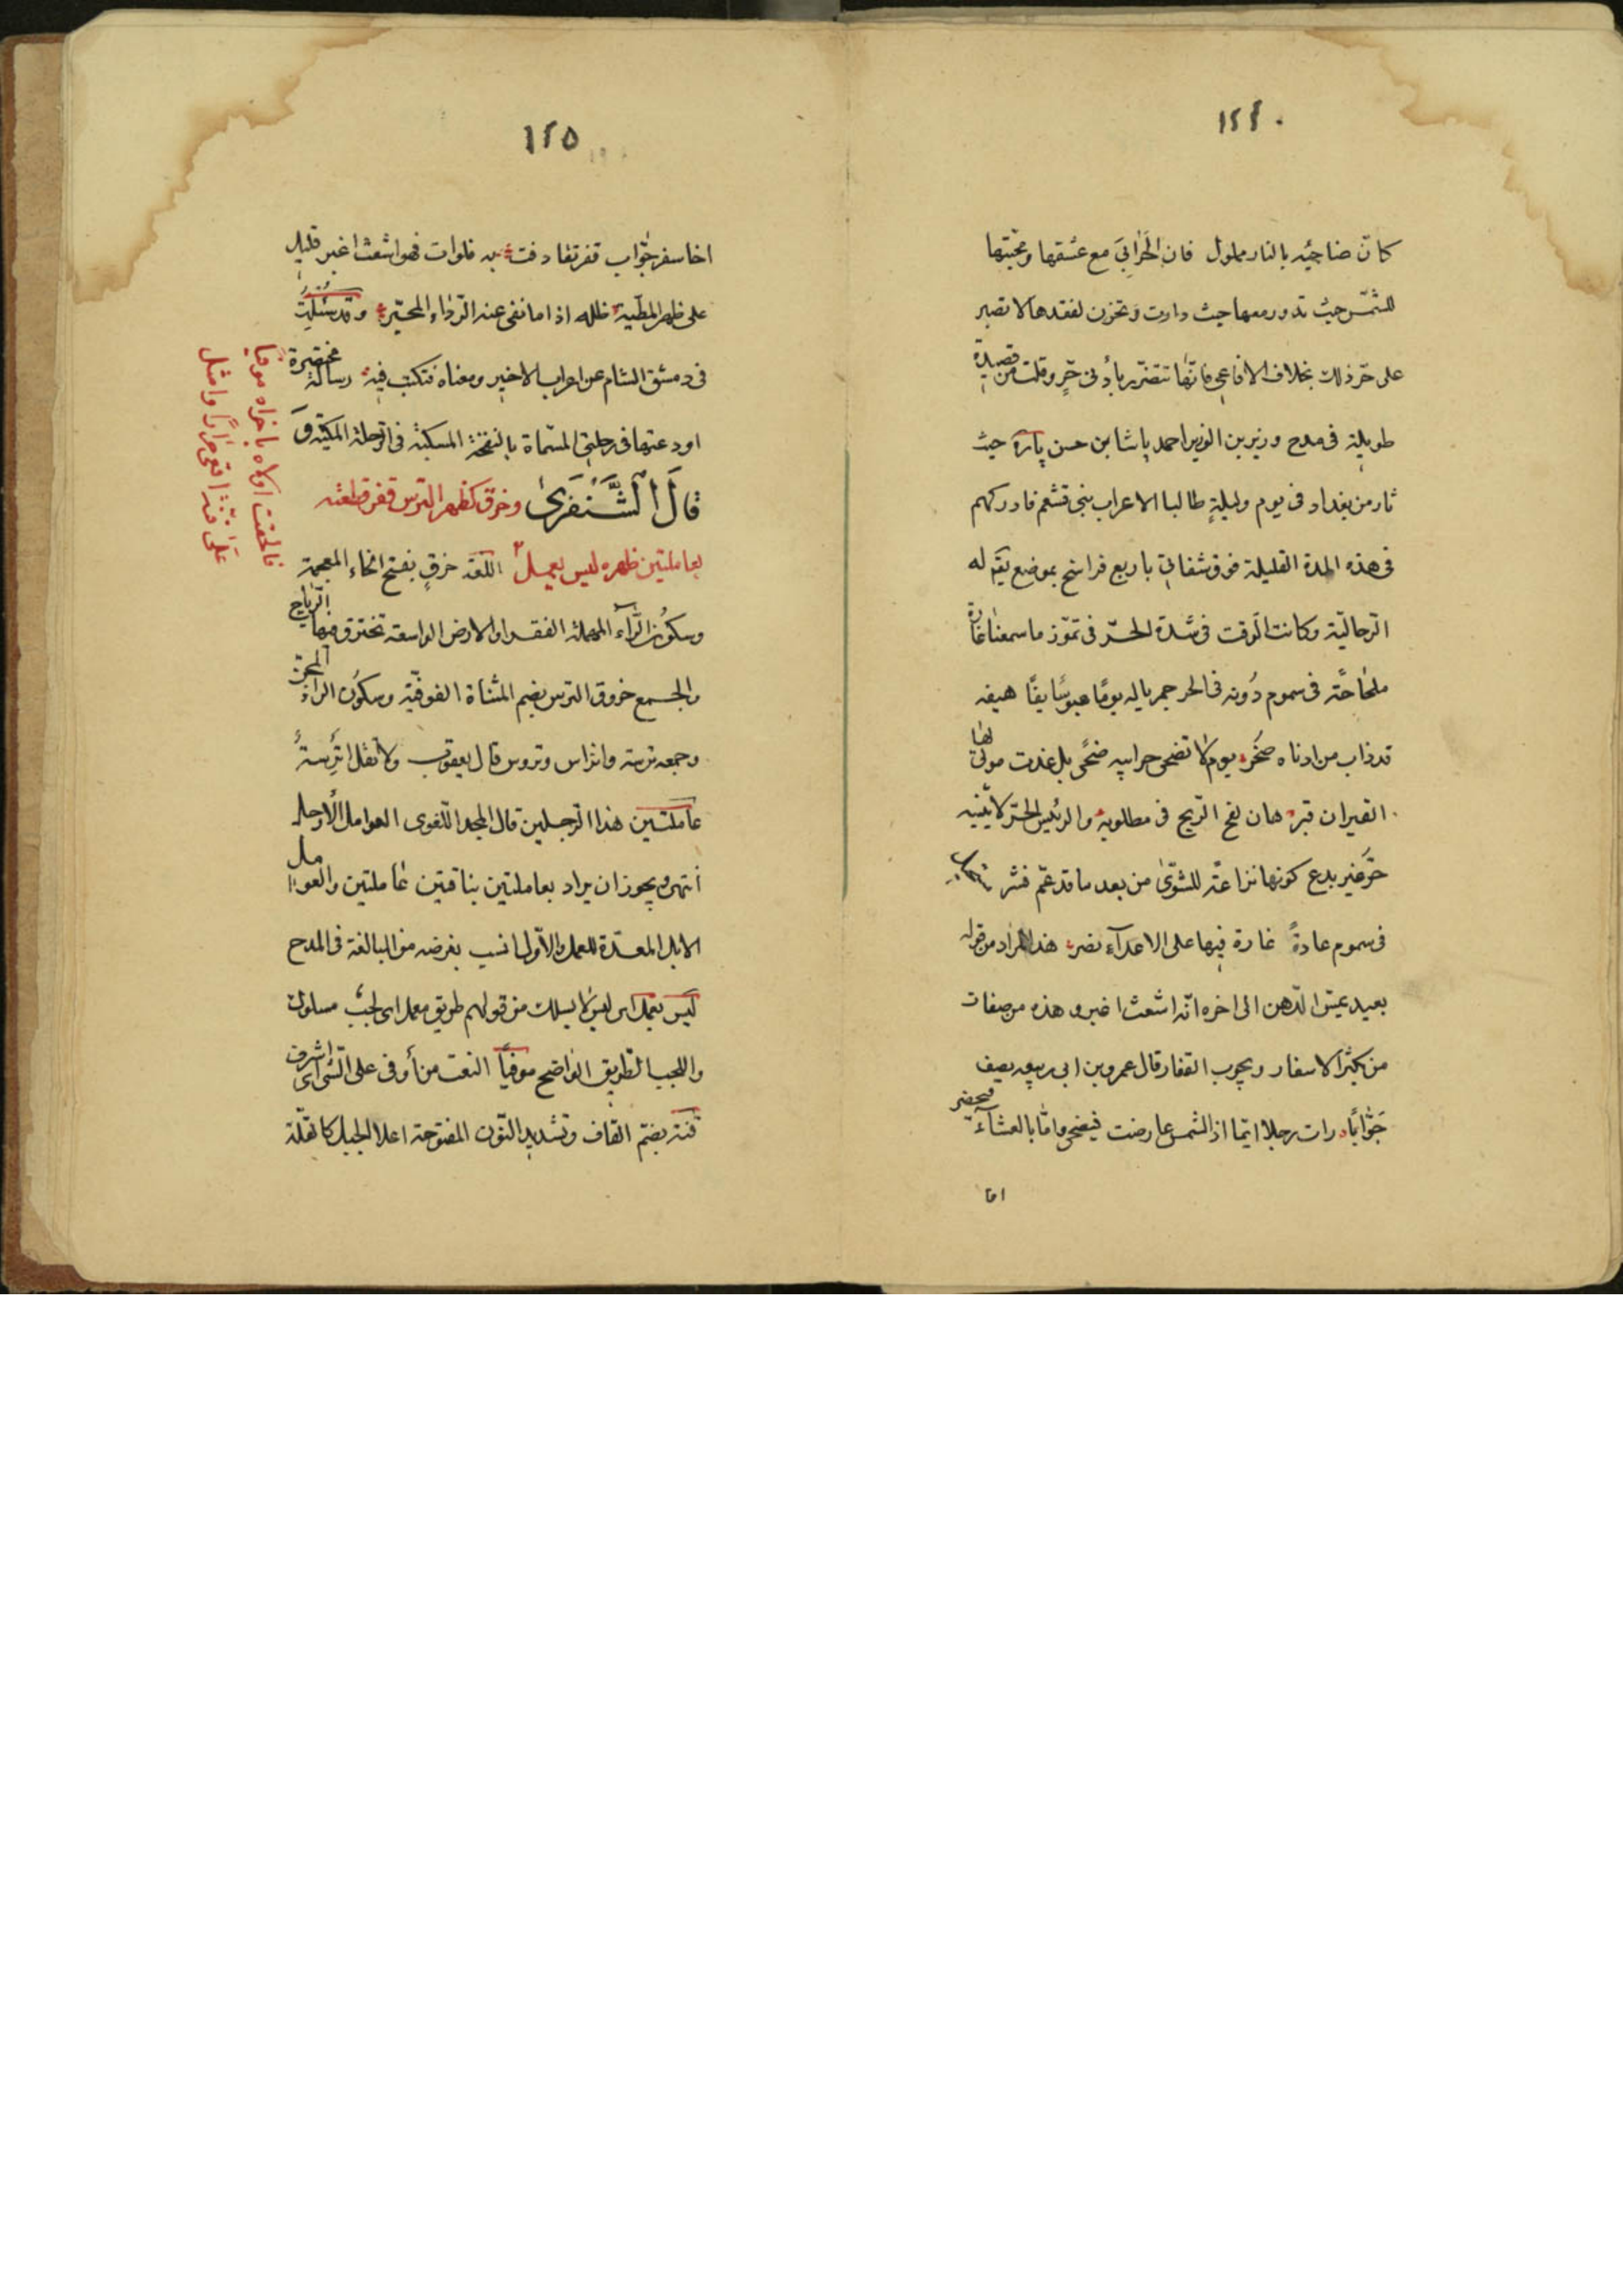 ١٢٤
كانّ ضاحيه بالنار مملول فان الحرابي مع عشقها ومحبّتها
للشمس حيث تدور معها حيث دارت وتحزن لفقدها لا تصبر
على حرّ ذلك بخلاف الافاعي فانّها تتضرر بأدنى حرّ وقلت من قصيدة
طويلة في مدح وزير بن الوزير احمد باشا بن حسن پاره حيث
ثار من بغداد في يوم وليلةٍ طالبا الاعراب بني قشعم فادركهم
في هذه المدة القليلة فوق شفاثي باربع فراسخ بموضع يقم له
الرحالية وكانت الوقت في شدة الحرّ في تموّز ما سمعنا غارة
في سموم دونه في الحر جمر ياله يومًا عبوسًا
قد ذاب من ادناه صخر يوم لا تضحى حرابيه ضحًى بل غدت موتى لها
القيران قبر هان لفح الريح في مطلوبه والرئيس الحرّ لا يثنيه
حرّ غير بدع كونها نزاعة للشوى من بعد ما قد عمّ
في سموم عادةً غارة فيها على الاعدآء نصر هذا المراد من قوله
بعيد عيش الدهن الى اخره انّه اشعث اغبر وهذه من صفات
من يكثر الاسفار ويجوب القفار قال عمرو بن ابي ربيعه يصف
جوّابًا رات رجلا ايما اذا الشمس عارضت فيضحى وامّا بالعشآء فيخصر
اخا
١٢٥
اخا سفر جوّاب قفر تقاذفت به فلوات فهو اشعث اغبر قليل
على ظهر المطية ظله اذا ما نفى عنه الرداء المحبّر وقد سئلت
في دمشق الشام عن اعراب الاخير ومعناه فكتبت فيه رسالة مختصرة
اودعتها في رحلتي المسماة بالنفحة المسكية في الرحلة المكيّة و
قال الشنفرى وخرق كظهر الترس قفر قطعته
بعاملتين ظهره ليس يعمل اللغة خرقٍ بفتح الخاء المعجمة
وسكون الرّآء المهملة القفر او الارض الواسعة تخترق فيها الرياح
والجمع خروق الترس بضم المثناة الفوقية وسكون الراء المجن
وجمعه ترسة واتراس وتروس قال يعقوب ولا تقل اترسة
عاملتين هذا الرجلين قال المجد اللغوي العوامل الارجل
انتهى ويجوز ان يراد بعاملتين بناقتين عاملتين والعوامل
الابل المعدّة للعمل والاول انسب بغرضه من المبالغة في المدح
ليس يعمل اي ليس يسلك من قولهم طريق معمل اي لحب مسلوك
واللحب الطريق الواضح موفيًا النعت من أوفى على الشئ اي اشرف
قنة بضم القاف وتشديد النون المفتوحة اعلا الجبل كالقلّة
فالحقت اولاه باخراه موفيا
على قنة اقعى مرارًا وامثل